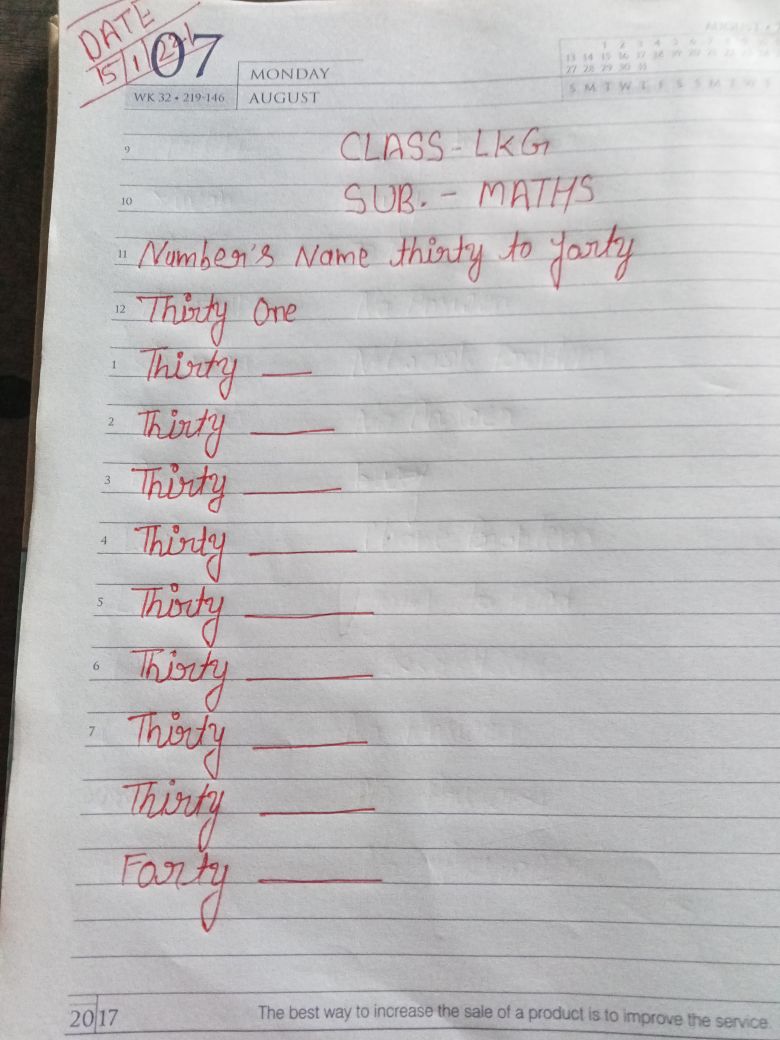 DATE
15/1/22
07
MONDAY
WK 32 • 219-146
AUGUST
1 2 3 4 5
13 14 15 16 17 18 19
27 28 29 30 31
S M T W T F S S M T W
9
CLASS - LKG
10
SUB. - MATHS
11 Number's Name thirty to forty
12 Thirty One
1 Thirty —
2 Thirty —
3 Thirty —
4 Thirty —
5 Thirty —
6 Thirty —
7 Thirty —
Thirty —
Farty —
2017
The best way to increase the sale of a product is to improve the service.